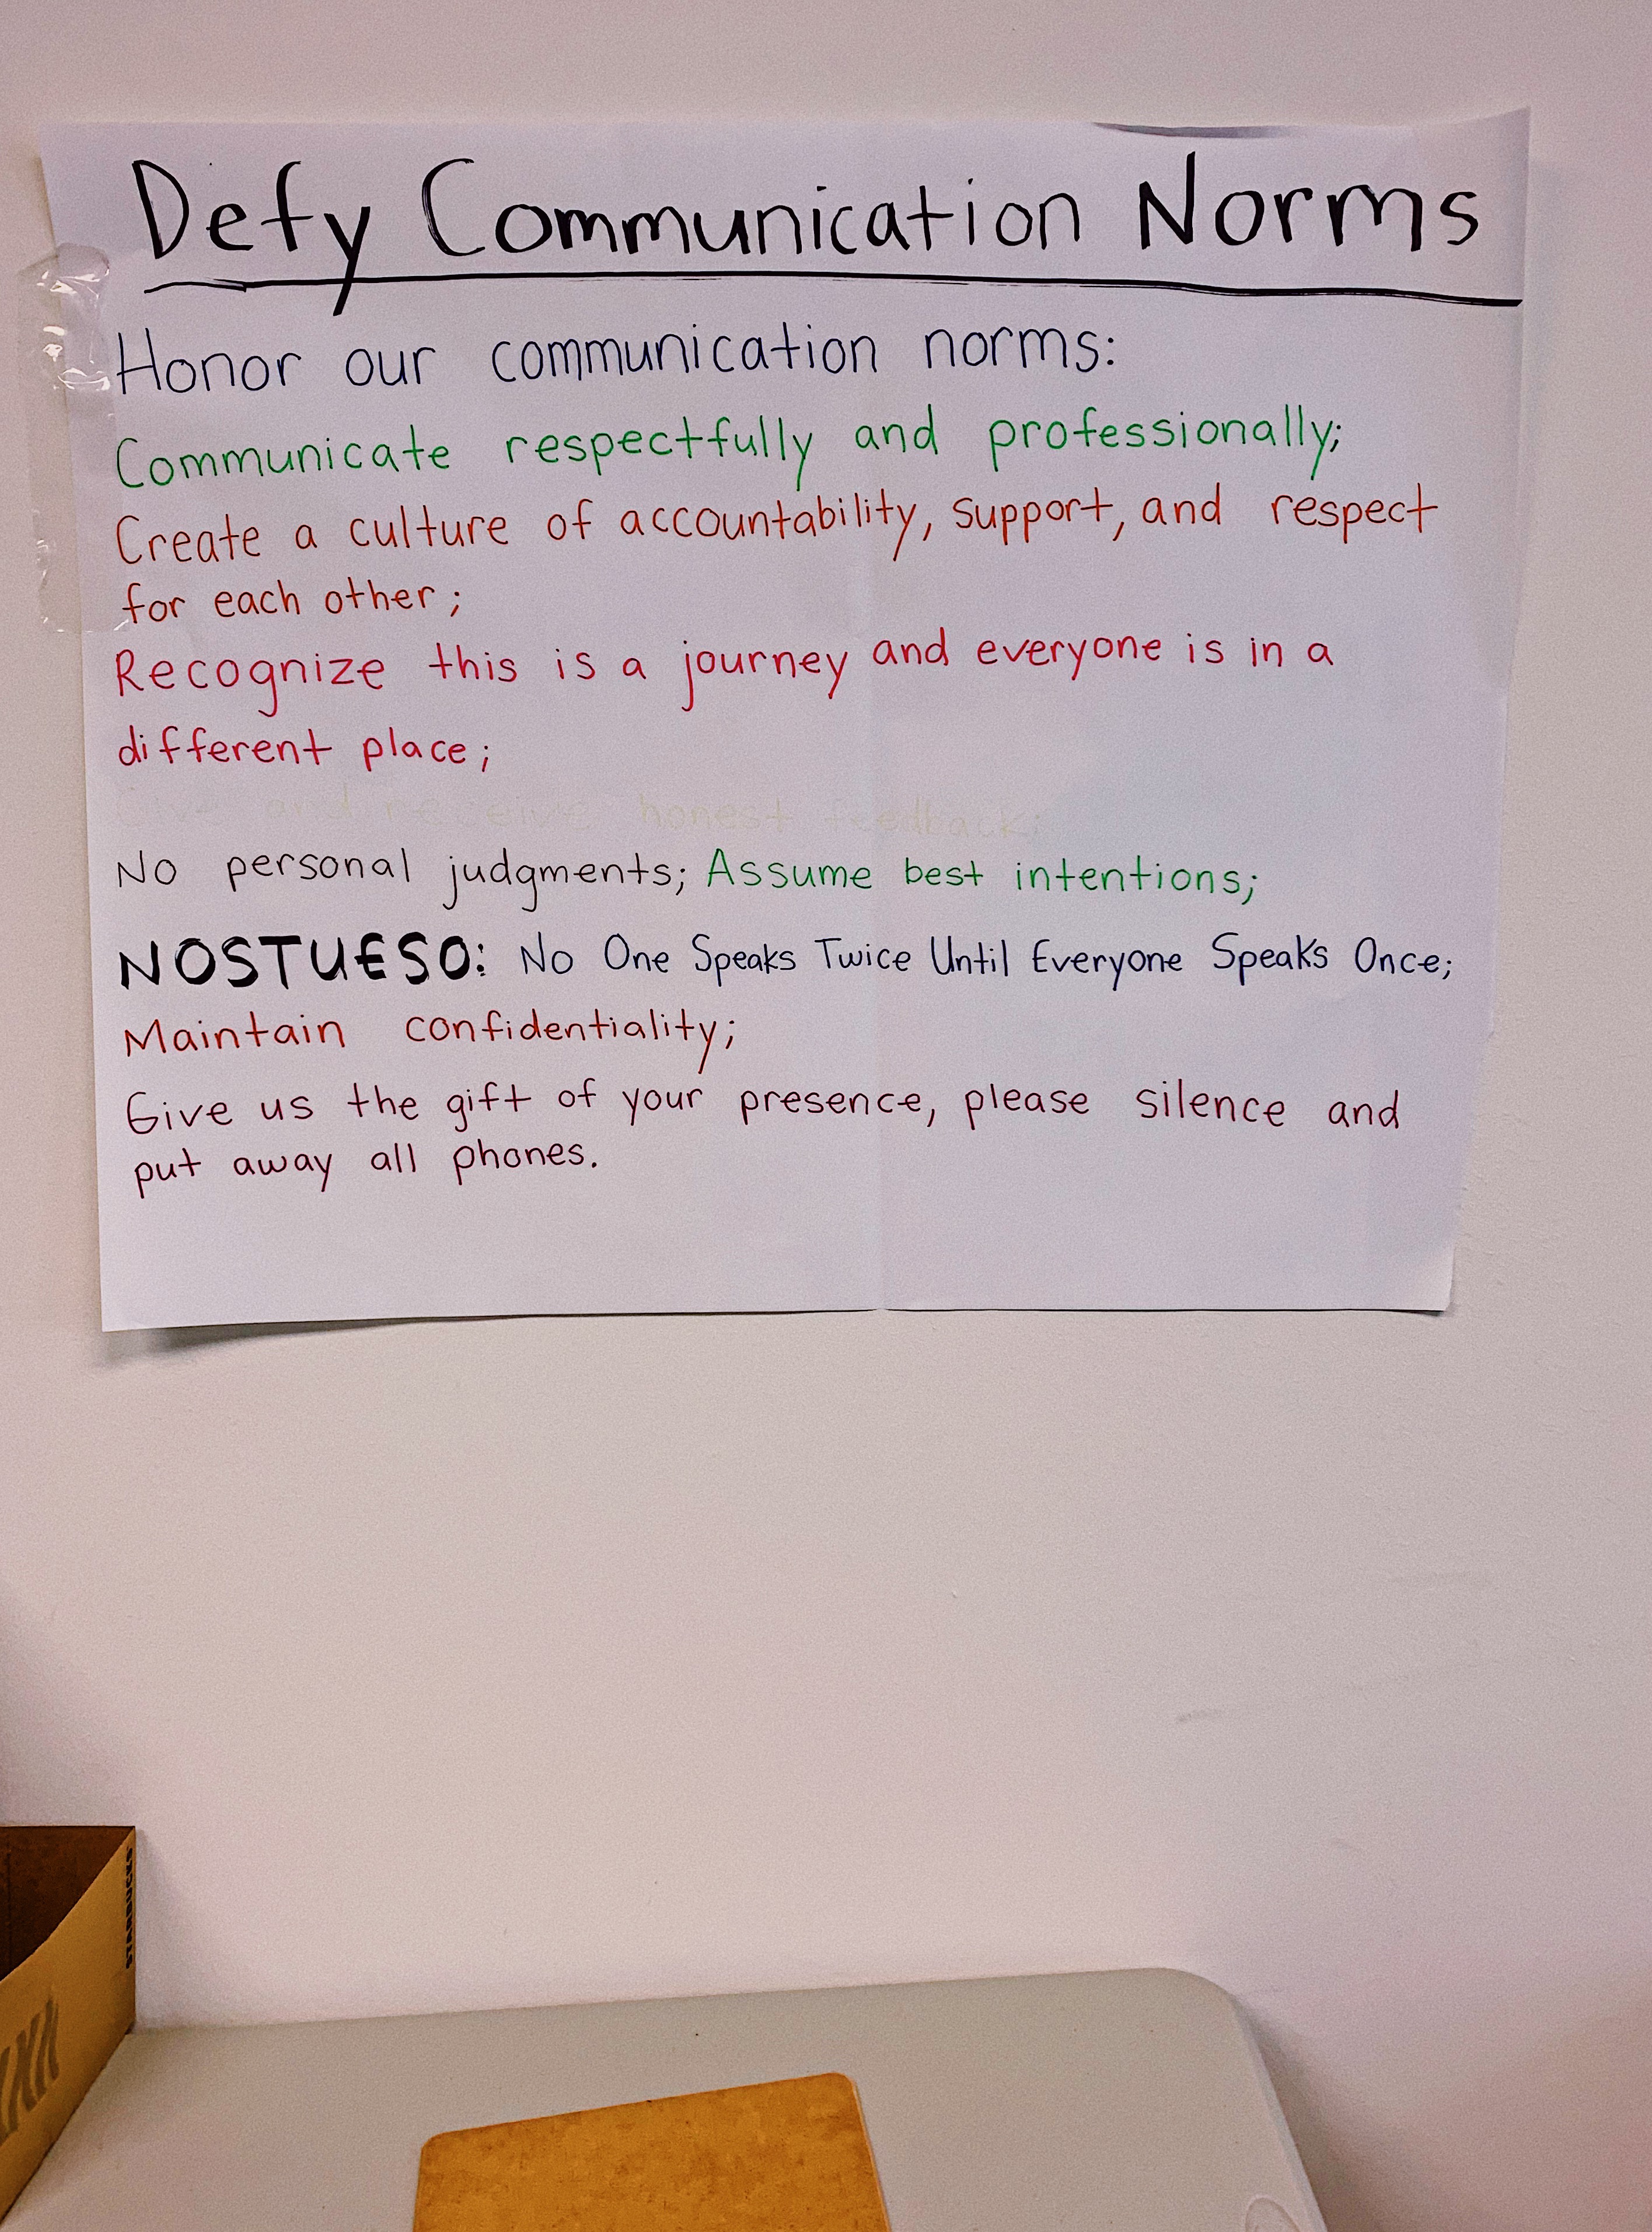 Defy Communication Norms
Honor our communication norms:
Communicate respectfully and professionally;
Create a culture of accountability, support, and respect
for each other;
Recognize this is a journey and everyone is in a
different place;
Give and receive honest feedback;
No personal judgments; Assume best intentions;
NOSTUESO: No One Speaks Twice Until Everyone Speaks Once;
Maintain confidentiality;
Give us the gift of your presence, please silence and
put away all phones.
STARBUCKS